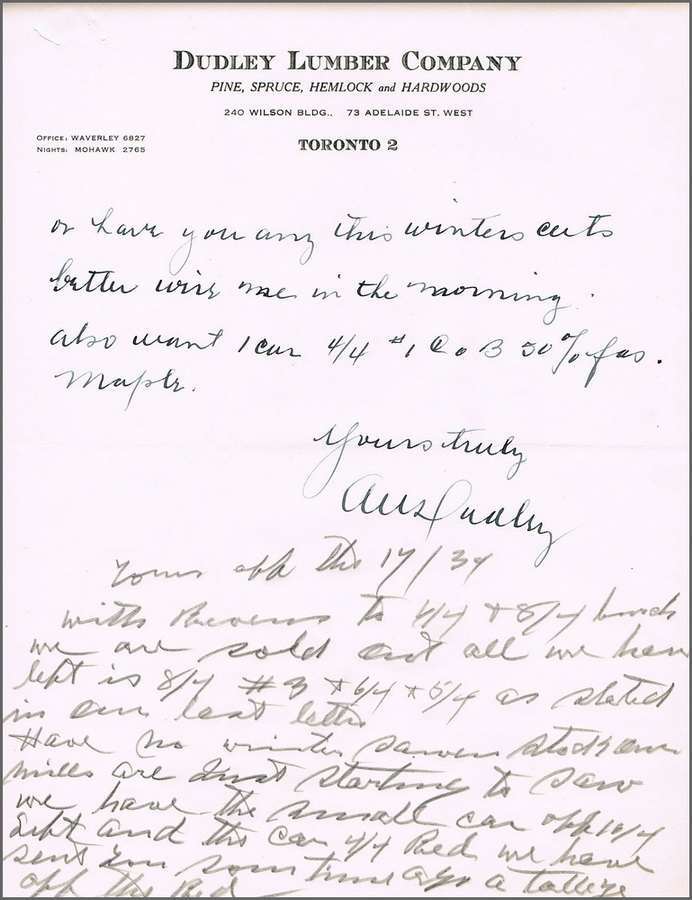 DUDLEY LUMBER COMPANY
PINE, SPRUCE, HEMLOCK and HARDWOODS
240 WILSON BLDG., 73 ADELAIDE ST. WEST
OFFICE: WAVERLEY 6827
NIGHTS: MOHAWK 2765
TORONTO 2
or have you any this winters cuts
better wire me in the morning.
also want 1 car 4/4 #1 C o B 50% fas.
Maple.
Yours truly
Dudley
Yours the 17/34
with to 4/4 + 8/4 birch
we are sold out all we have
left is 8/4 #3 + 6/4 + 5/4 as stated
in our last letter
Have no winter sawn stock our
mills are Just starting to saw
we have the small car 10/4
left and the car 4/4 Red we have
sent you some time ago a
the Red